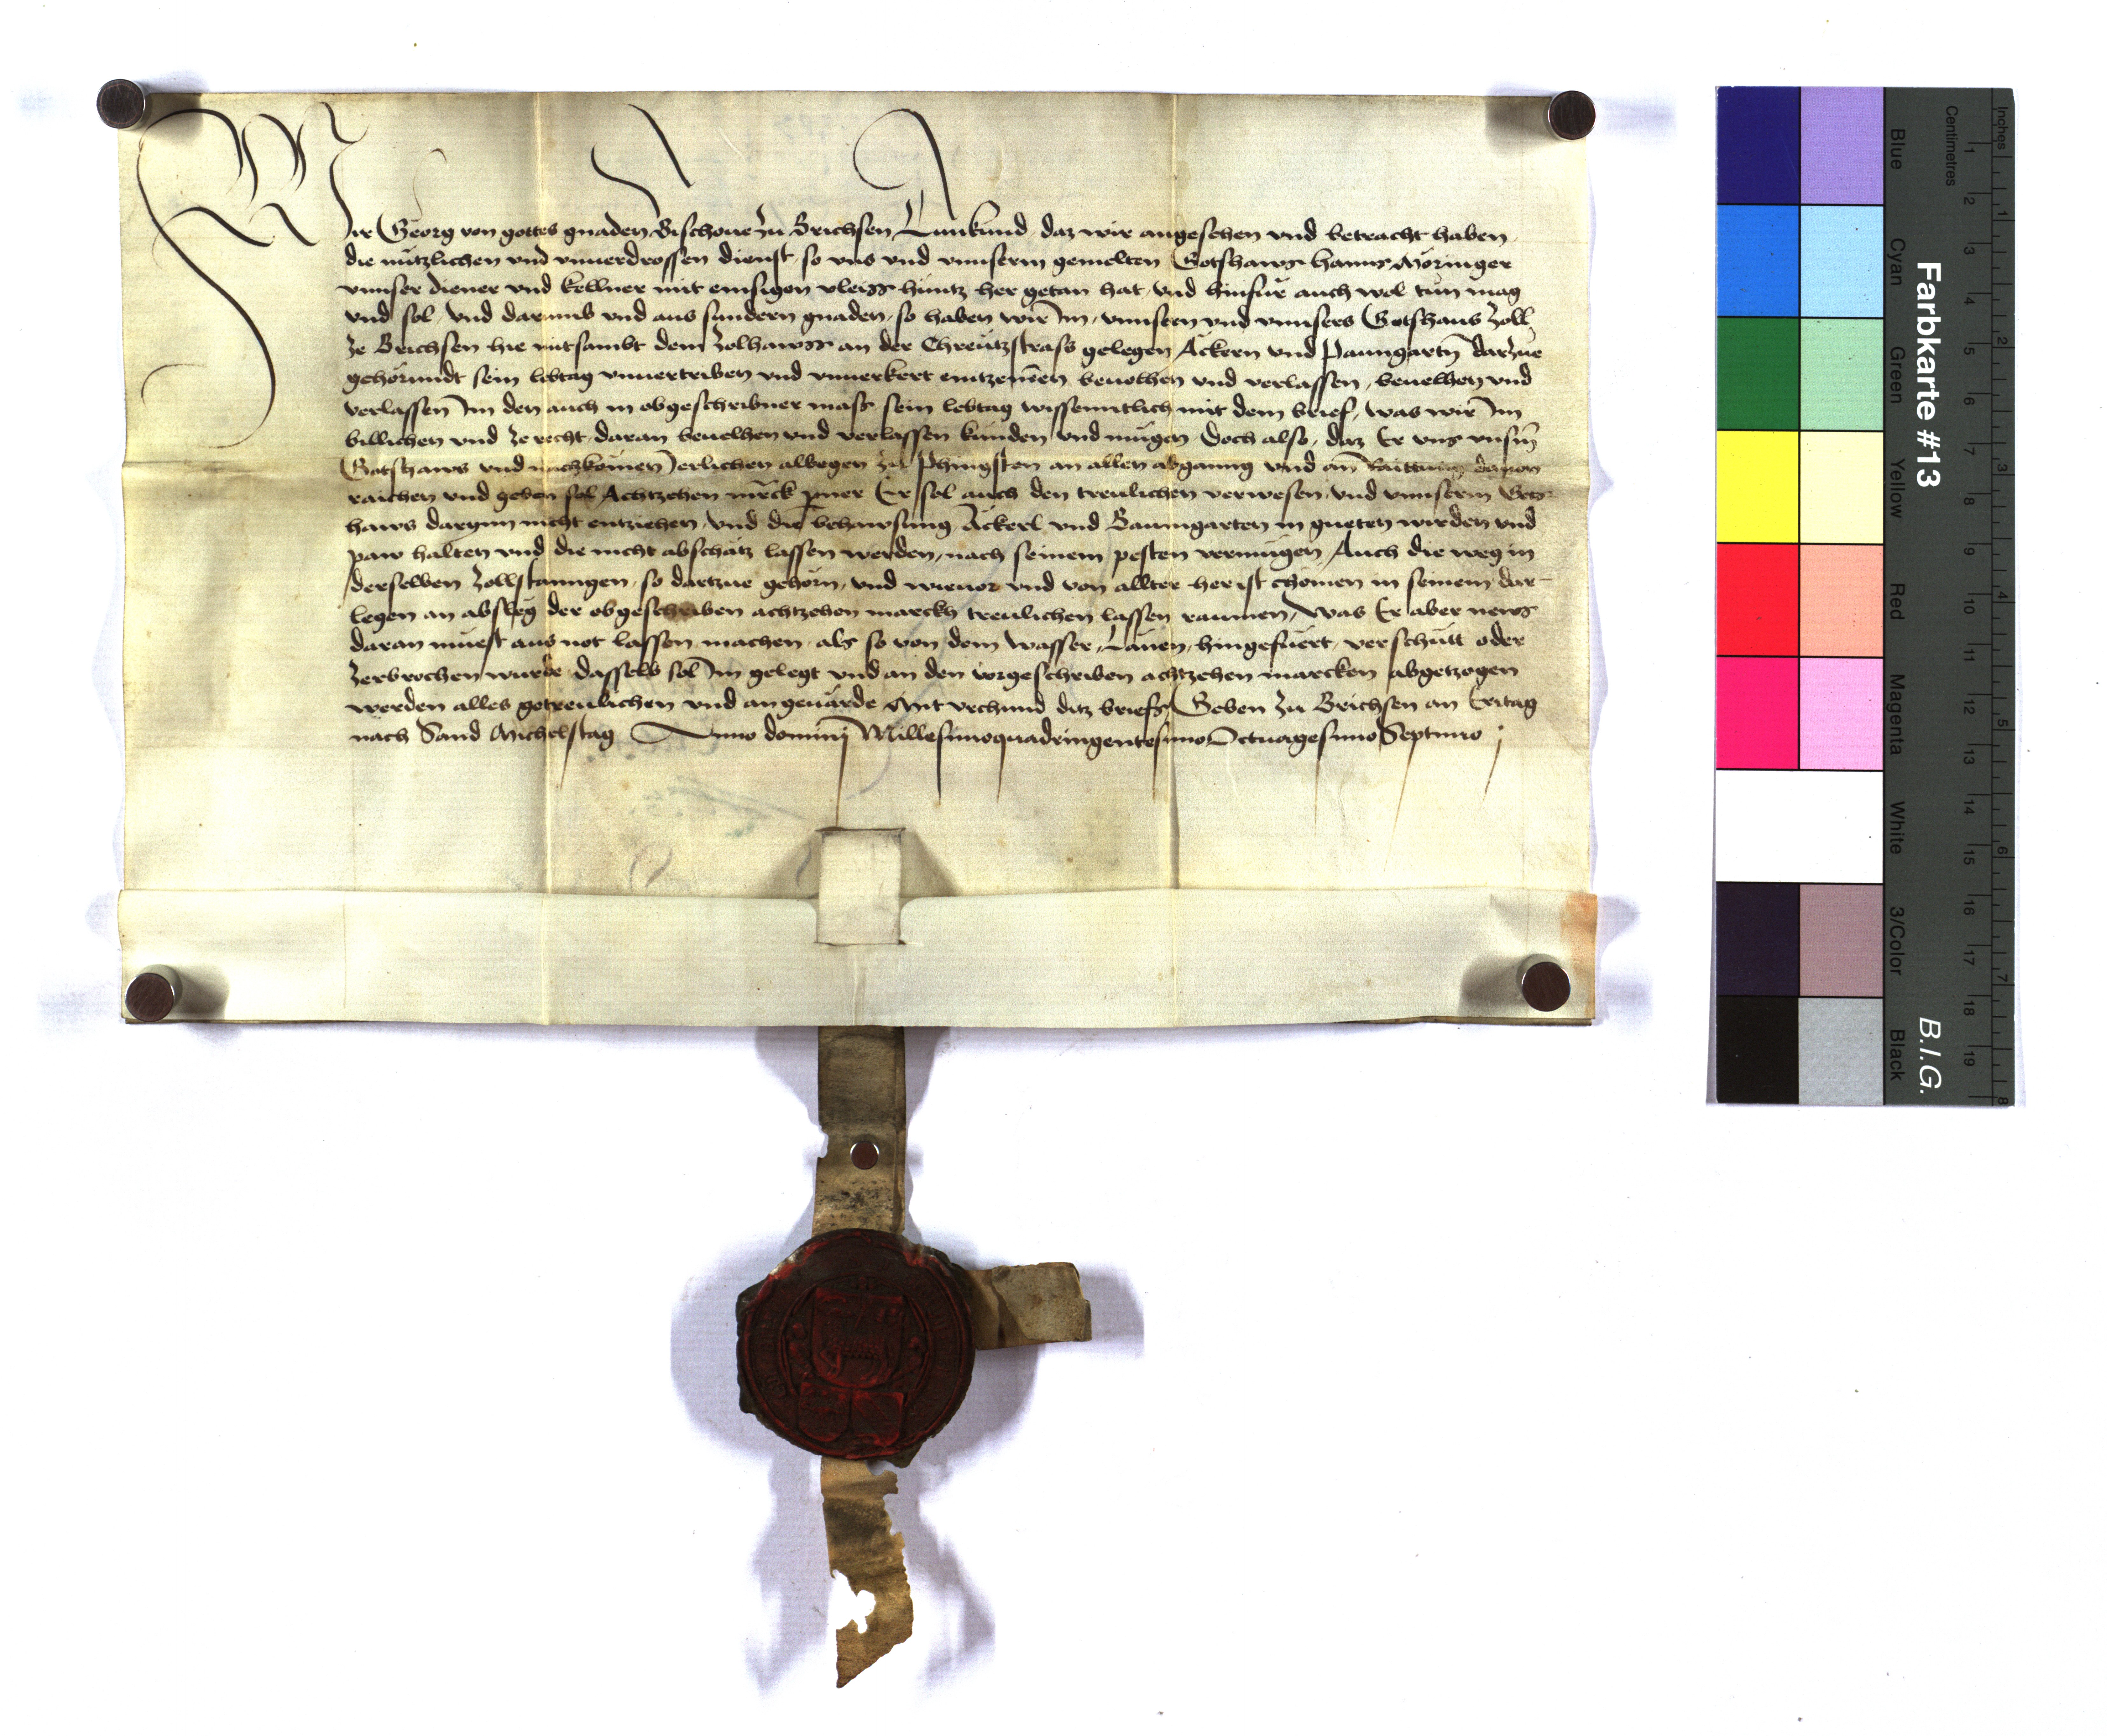 Wir Georg von gottes gnaden Bischoue zu Brichsen Tunkund daz wir angesehen vnd betracht haben
die nützlichen vnd vnuerdrossen dienst so vns vnd vnnserm gemelten Gotshawss Hanns Möringer
vnnser diener vnd kellner mit emsigen vleiss hüntz her getan hat, vnd hinfür auch wol tün mag
vnd sol, vnd darumb vnd aus sundern gnaden, so haben wir Im, vnnsern vnd vnnsers Gotshaus Zoll
ze Brichsen hie mitsambt dem Zolhawss an der Chreutzstrass gelegen Äckern vnd Paumgartn̄ darzue
gehörundt sein lebtag vnuertriben vnd vnuerkert beuolhen vnd verlassen, beuelhen vnd
verlassen Im den auch in obgeschribner mass sein lebtag wissenntlich mit dem brief, was wir Im
billichen vnd ze recht daran beuelhen vnd verlassen künden vnd mügen Doch also, daz Er vns vnsm̄
Gotshaws vnd nachkömen Ierlichen albegen zu Phingsten an allen abganng vnd an dauon
raichen vnd geben sol Achtzehen mr̄ck pner Er sol auch den treulichen verwesen, vnd vnnserm Gots-
haws darynn nicht entziehen, vnd die behawsung Äckerl vnd Baumgarten in gueten wirden vnd
paw halten vnd die nicht abschätz lassen werden, nach seinem pesten vermügen, Auch die weg in
derselben Zollstanngen, so dartzue gehörn, vnd wieuor vnd von allter her ist chömen in seinem dar-
legen an abslëg der obgeschriben achtzehen marckh treulichen lassen raumen, Was Er aber news
daran müest aus not lassen machen, als so von dem wasser, Länen, hingefüert, verschütt oder
zerbrochen wurde dasselb sol Im gelegt vnd an den vorgeschriben achtzehen marcken abgetzogen
werden alles getreulichen vnd angeuärde Mit vrchund ditz briefs Geben zu Brichsen an Eritag
nach Sand Michelstag Anno domini Millesimoquadringentesimo Octuagesimo Septimo
Farbkarte #13
B.I.G.
Inches
Centimetres
1 2 3 4 5 6 7 8
1 2 3 4 5 6 7 8 9 10 11 12 13 14 15 16 17 18 19
Blue
Cyan
Green
Yellow
Red
Magenta
White
3/Color
Black